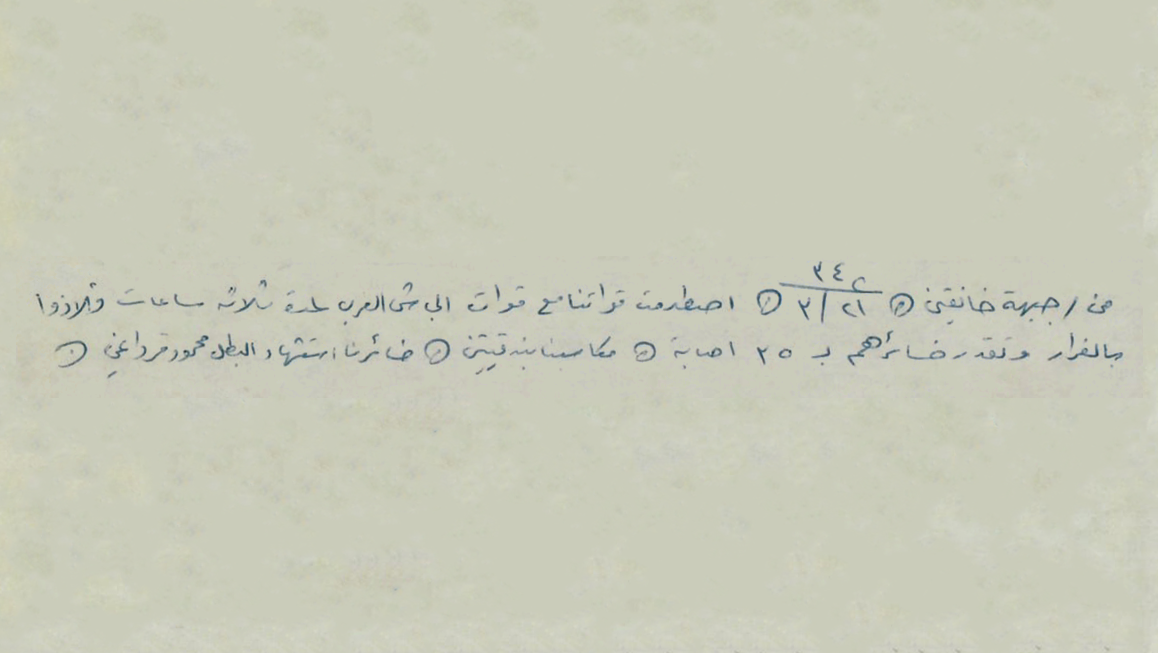 ٣٤٢
من / جبهة خانقين ⊙ ٢١/٣ ⊙ اصطدمت قواتنا مع قوات الجاش العرب لمدة ثلاثة ساعات ولاذوا
بالفرار وتقدر خسائرهم بـ ٢٥ اصابة ⊙ مكاسبنا بندقيتين ⊙ خسائرنا استشهاد البطل محمود قرداغي ⊙